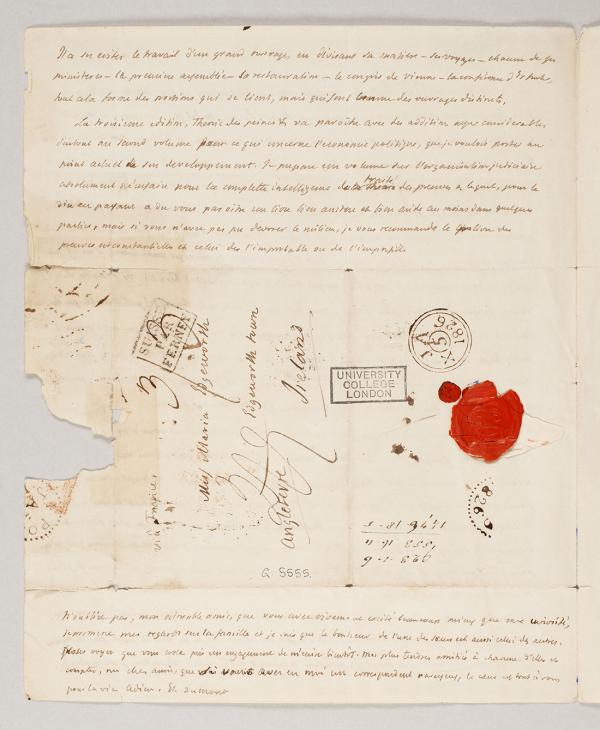 Il a su éviter le travail d'un grand ouvrage, en divisant sa matière - ses voyages - chacun de ses
ministères - la première assemblée - la restauration - le congrès de vienne -
tout cela forme des portions qui se lient, mais qui font comme des ouvrages distincts.
La troisième edition, Théorie des peines &c va paroître avec des additions assez considérables
surtout au second volume pour ce qui concerne l'economie politique, que je voulois porter au
point actuel de son developpement. Je prepare un volume sur l'organisation judiciaire
absolument nécessaire pour la complette intelligence du traité des preuves
en passant a du vous paroître un livre bien austère et bien aride au moins dans quelques
parties, mais si vous n'avez pas pu devorer le milieu, je vous recommande le
preuves circonstantielles et celui de l'improbable ou de l'impossible
SUISSE
PAR
FERNEY
Miss Maria Edgeworth
Edgeworth town
Ireland
Angleterre
via
JA
X 5
1826
UNIVERSITY
COLLEGE
LONDON
826
423-1-6
1176-18-5
G. 5555.
N'oubliez pas, mon aimable amie, que vous avez vivement excité beaucoup mieux que ma curiosité,
je promène mes regards sur la famille et je sais que le bonheur de l'une des sœurs est aussi celui des autres.
que vous avez pris un engagement de m'écrire bientôt. Mes plus tendres amitiés à chacune d'elles et
comptez, ma chère amie, que si vous avez en moi un correspondant paresseux, le cœur est tout à vous
pour la vie Adieu. Et. Dumont